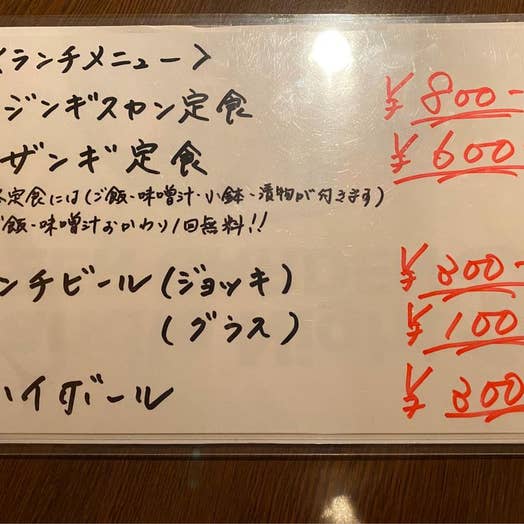 <ランチメニュー>
ジンギスカン定食 ¥800-
ザンギ定食 ¥600
定食には(ご飯・味噌汁・小鉢・漬物が付きます)
ご飯・味噌汁おかわり1回無料!!
ンチビール(ジョッキ) ¥300-
(グラス) ¥100
ハイボール ¥300